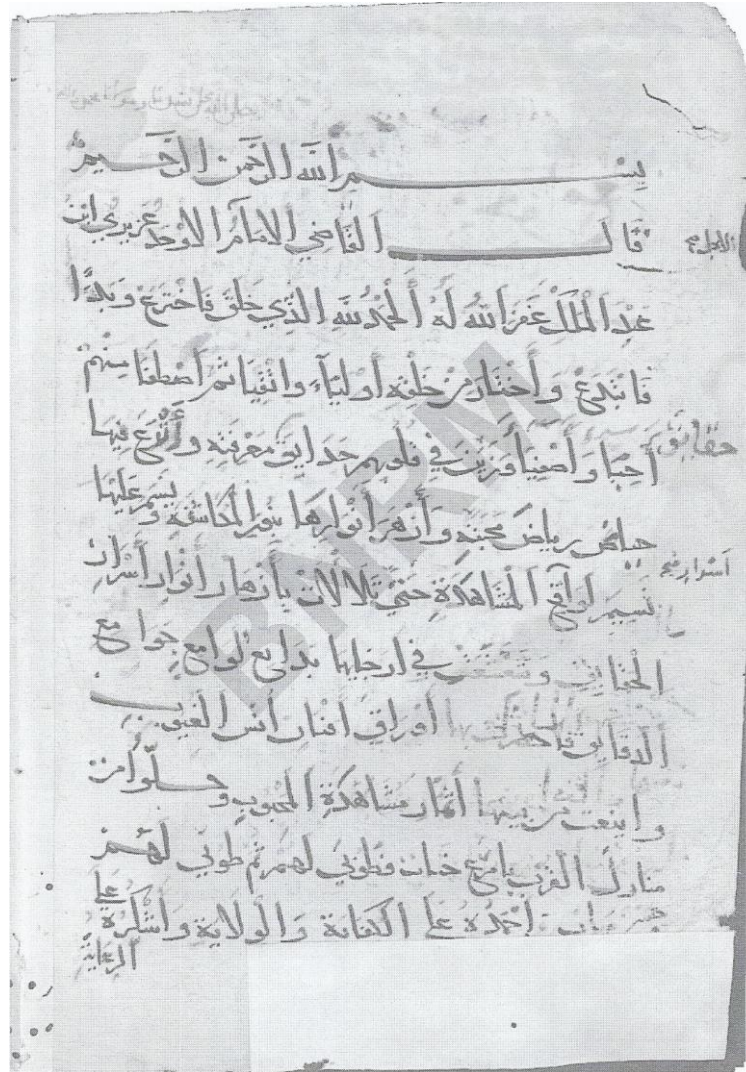 بسم الله الرحمن الرحيم
قال القاضي الامام الاوحد عزيزي ابن
عبد الملك غفر الله له الحمد لله الذي خلق فاخترع وبدا
فابتدع واختار من خلقه اولياء واتقيا ثم اصطفا منهم
احبا واصفيا وزين في قلوبهم حدايق معرفته وأترع فيها
حياض رياض محبته وأزهر أنوارها بنور المكاشفة ويسم عليها
نسيم لواقح المشاهدة حتى تلألأت بأزهار أنوار أسرار
الحقايق في ارجايها بدايع لوامع جوامع
الدقايق اوراق افنان أنس الغيوب
واينعت من بينها أثمار مشاهدة المحبوب وحلوا من
منازل القرب فطوبى لهم ثم طوبى لهم
احمده على الكفاية والولاية وأشكره على
الرعاية
حقايق
اسرار صح
BNRM